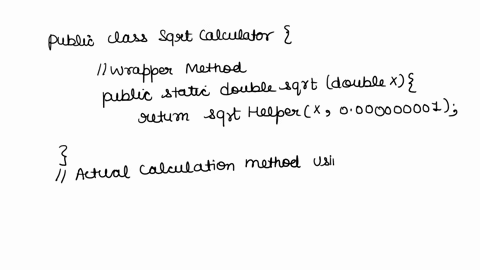 public class Sqrt Calculator {
// Wrapper Method
public static double sqrt (double x){
return sqrt Helper(x, 0.000000001);
}
// Actual Calculation method usi